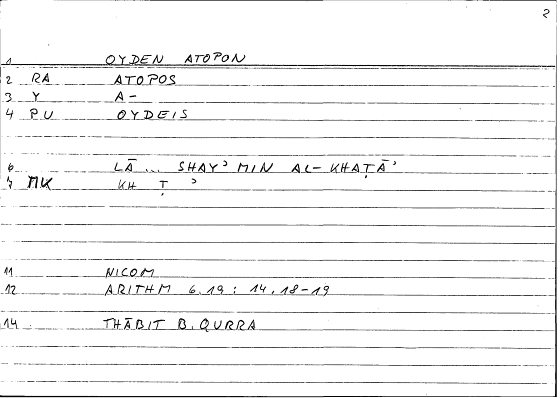 2
1 OYDEN ATOPON
2 RA ATOPOS
3 Y A-
4 PU OYDEIS
6 LĀ ... SHAYʾ MIN AL-KHAṬĀʾ
7 MK KH Ṭ ʾ
11 NICOM
12 ARITHM 6.19 : 14.18-19
14 THĀBIT B. QURRA